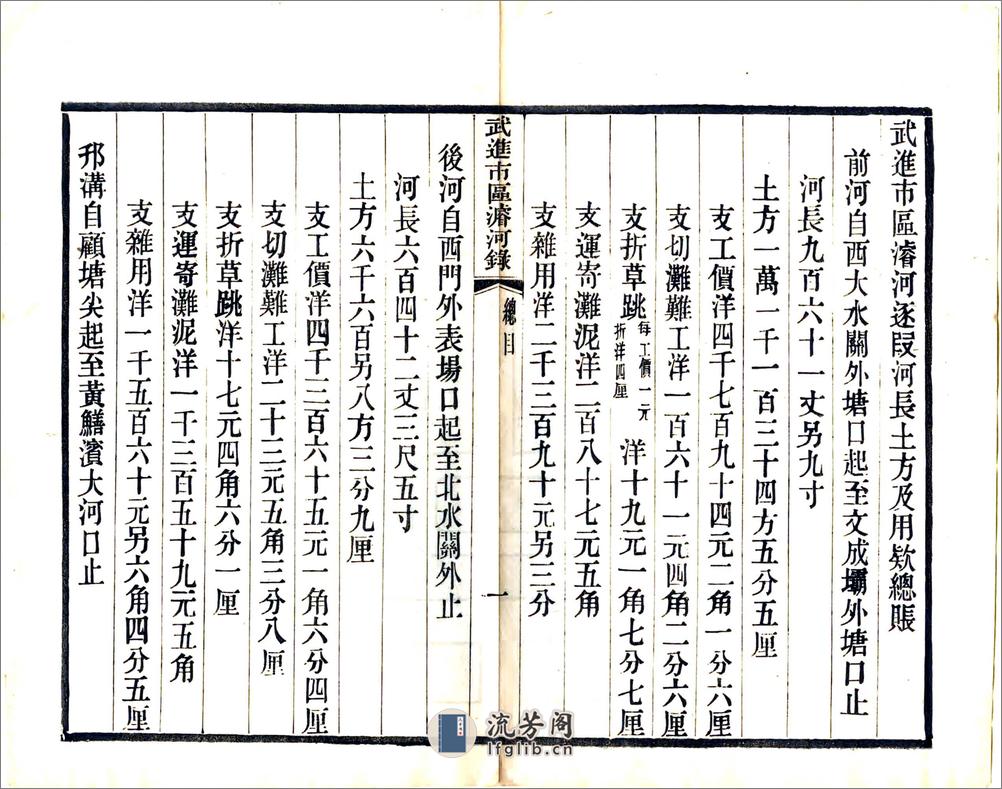 武進市區濬河逐段河長土方及用欵總賬
前河自西大水關外塘口起至文成壩外塘口止
河長九百六十一丈另九寸
土方一萬一千一百三十四方五分五厘
支工價洋四千七百九十四元二角一分六厘
支切灘難工洋一百六十一元四角二分六厘
支折草跳每工價一元折洋四厘洋十九元一角七分七厘
支運寄灘泥洋二百八十七元五角
支雜用洋二千三百九十元另三分
武進市區濬河錄
總目
一
後河自西門外表場口起至北水關外止
河長六百四十二丈三尺五寸
土方六千六百另八方三分九厘
支工價洋四千三百六十五元一角六分四厘
支切灘難工洋二十三元五角三分八厘
支折草跳洋十七元四角六分一厘
支運寄灘泥洋一千三百五十九元五角
支雜用洋一千五百六十元另六角四分五厘
邗溝自顧塘尖起至黃鱔濱大河口止
流芳阁
lfglib.cn